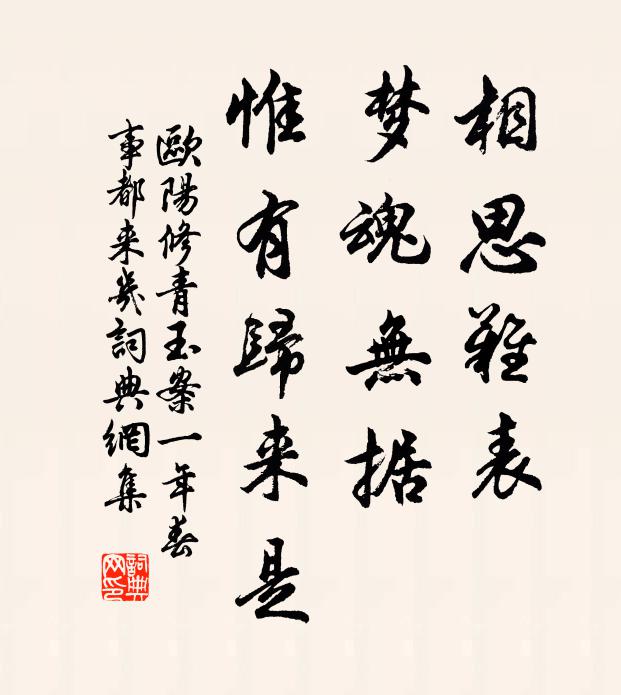 相思難表
梦魂無据
惟有歸来是
歐陽修青玉案一年春
事都来幾詞典網集
詞典
网印